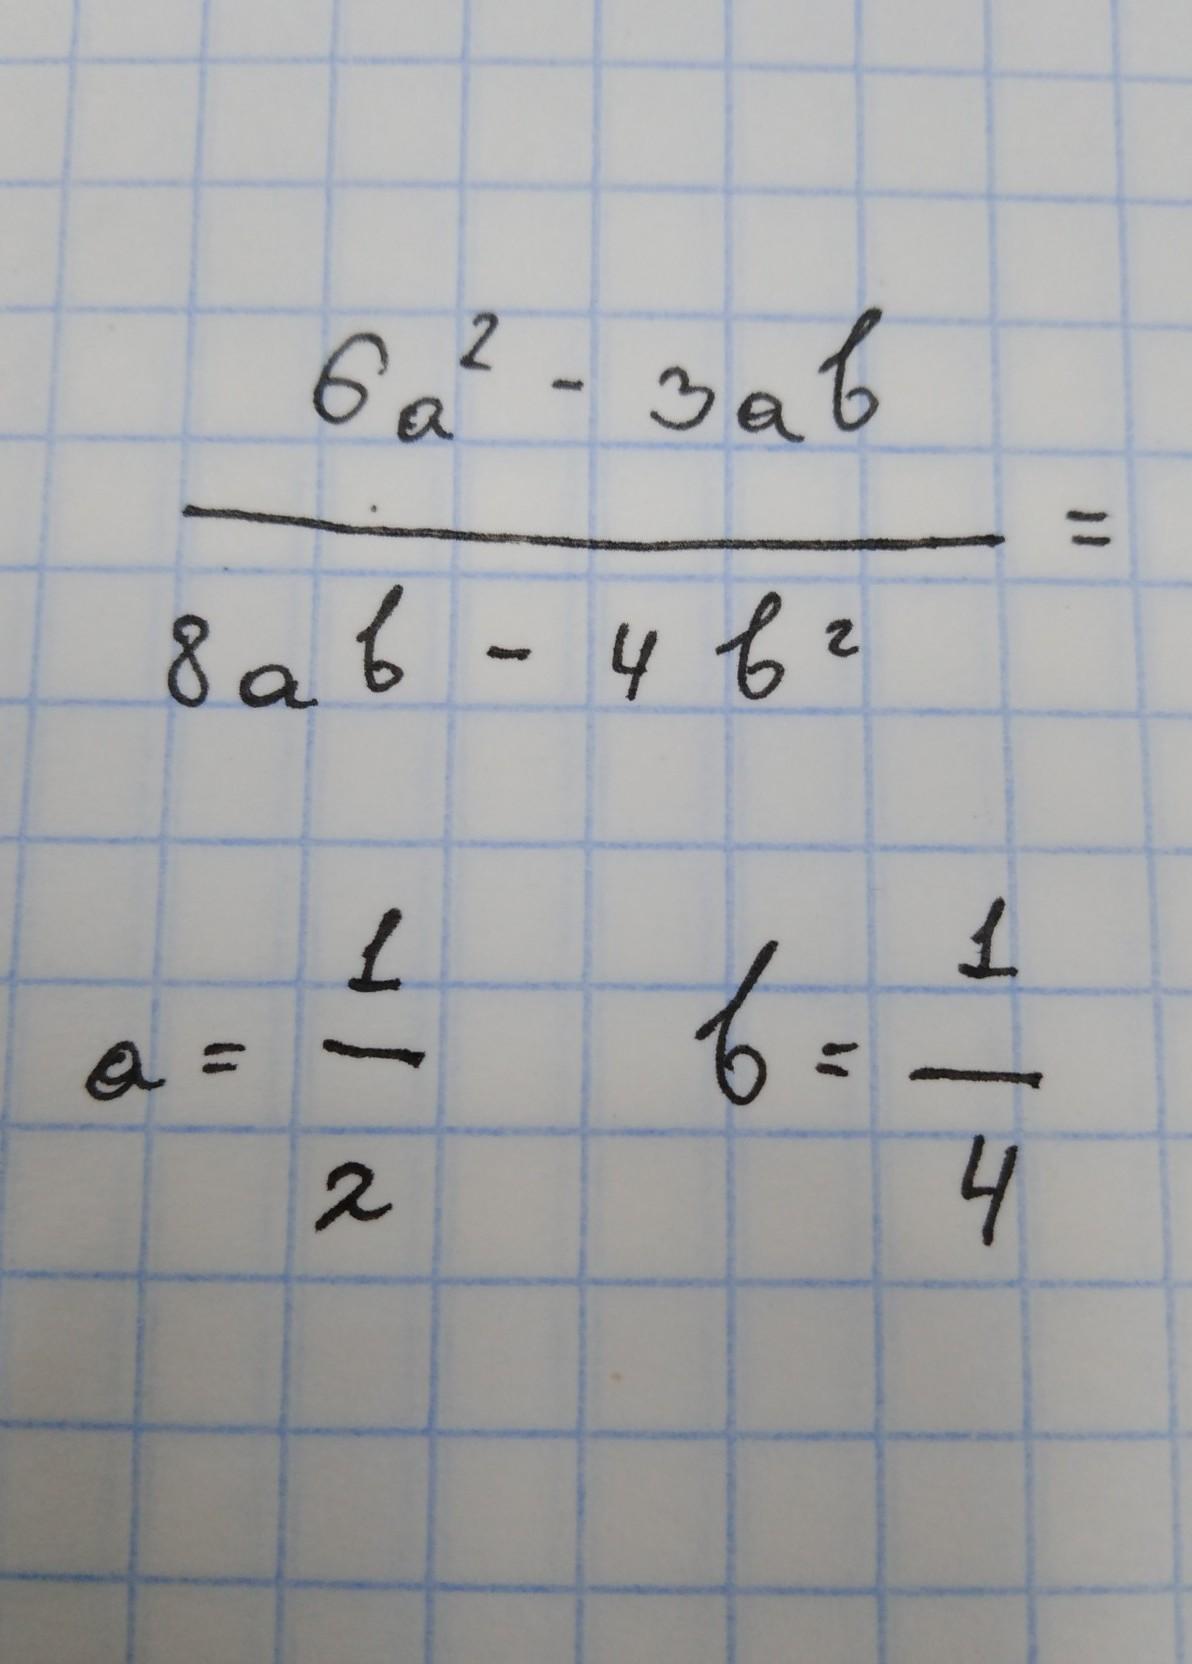 6a² - 3ab
——— =
8ab - 4b²
a = 1/2 b = 1/4